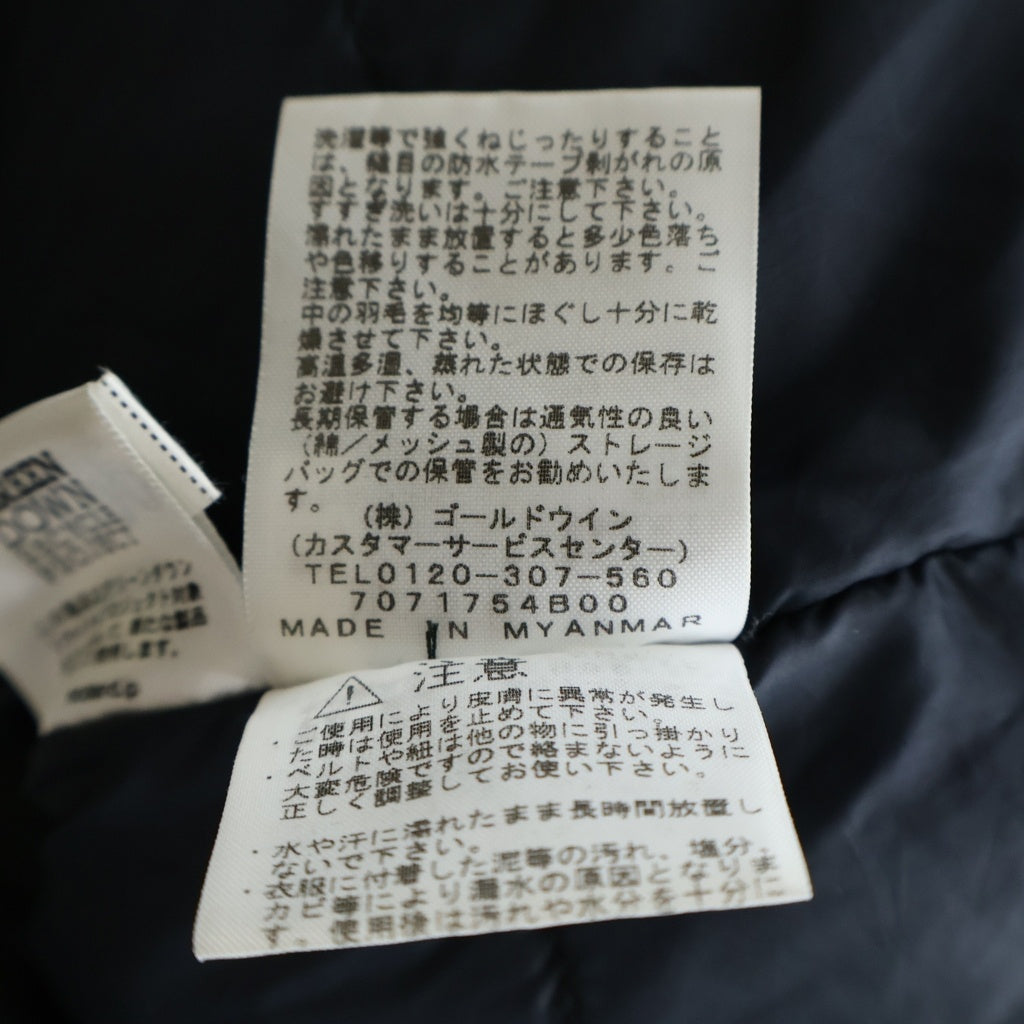 洗濯等で強くねじったりすること
は、縫目の防水テープ剥がれの原
因となります。ご注意下さい。
すすぎ洗いは十分にして下さい。
濡れたまま放置すると多少色落ち
や色移りすることがあります。ご
注意下さい。
中の羽毛を均等にほぐし十分に乾
燥させて下さい。
高温多湿、蒸れた状態での保存は
お避け下さい。
長期保管する場合は通気性の良い
(綿/メッシュ製の)ストレージ
バッグでの保管をお勧めいたしま
す。
(株)ゴールドウイン
(カスタマーサービスセンター)
TEL0120-307-560
7071754B00
MADE IN MYANMAR
注意
・ご使用により皮膚に異常が発生し
た時は使用を止めて下さい。
・ベルトや紐は他の物に引っ掛かり
大変危険ですので絡まないように
正しく調整してお使い下さい。
・水や汗に濡れたまま長時間放置し
ないで下さい。
・衣服に付着した泥等の汚れ、塩分、
カビ等により漏水の原因となりま
す。使用後は汚れや水分を十分に
GREEN
DOWN
グリーンダウン
プロジェクト対象
新たな製品
します。